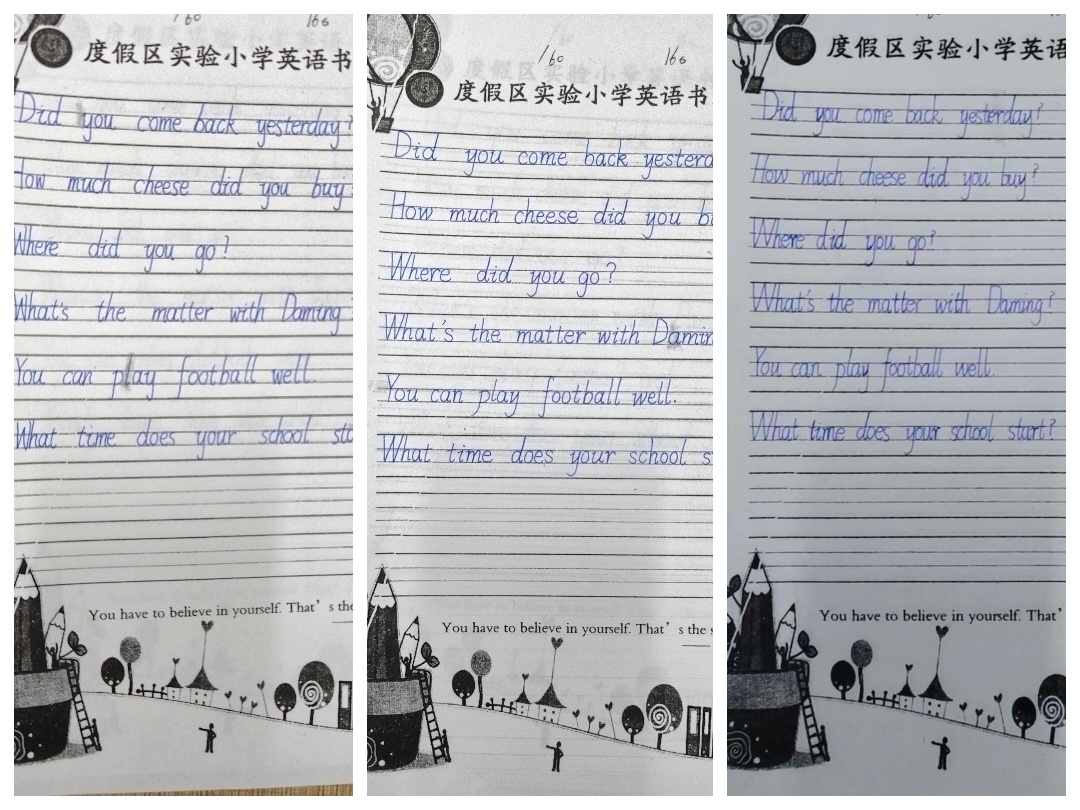 160 166
度假区实验小学英语书
Did you come back yesterday?
How much cheese did you buy
Where did you go?
What's the matter with Daming?
You can play football well.
What time does your school sta
You have to believe in yourself. That's the
160 166
度假区实验小学英语书
Did you come back yesterd
How much cheese did you bu
Where did you go?
What's the matter with Damin
You can play football well.
What time does your school s
You have to believe in yourself. That's the s
度假区实验小学英语
Did you come back yesterday?
How much cheese did you buy?
Where did you go?
What's the matter with Daming?
You can play football well.
What time does your school start?
You have to believe in yourself. That'